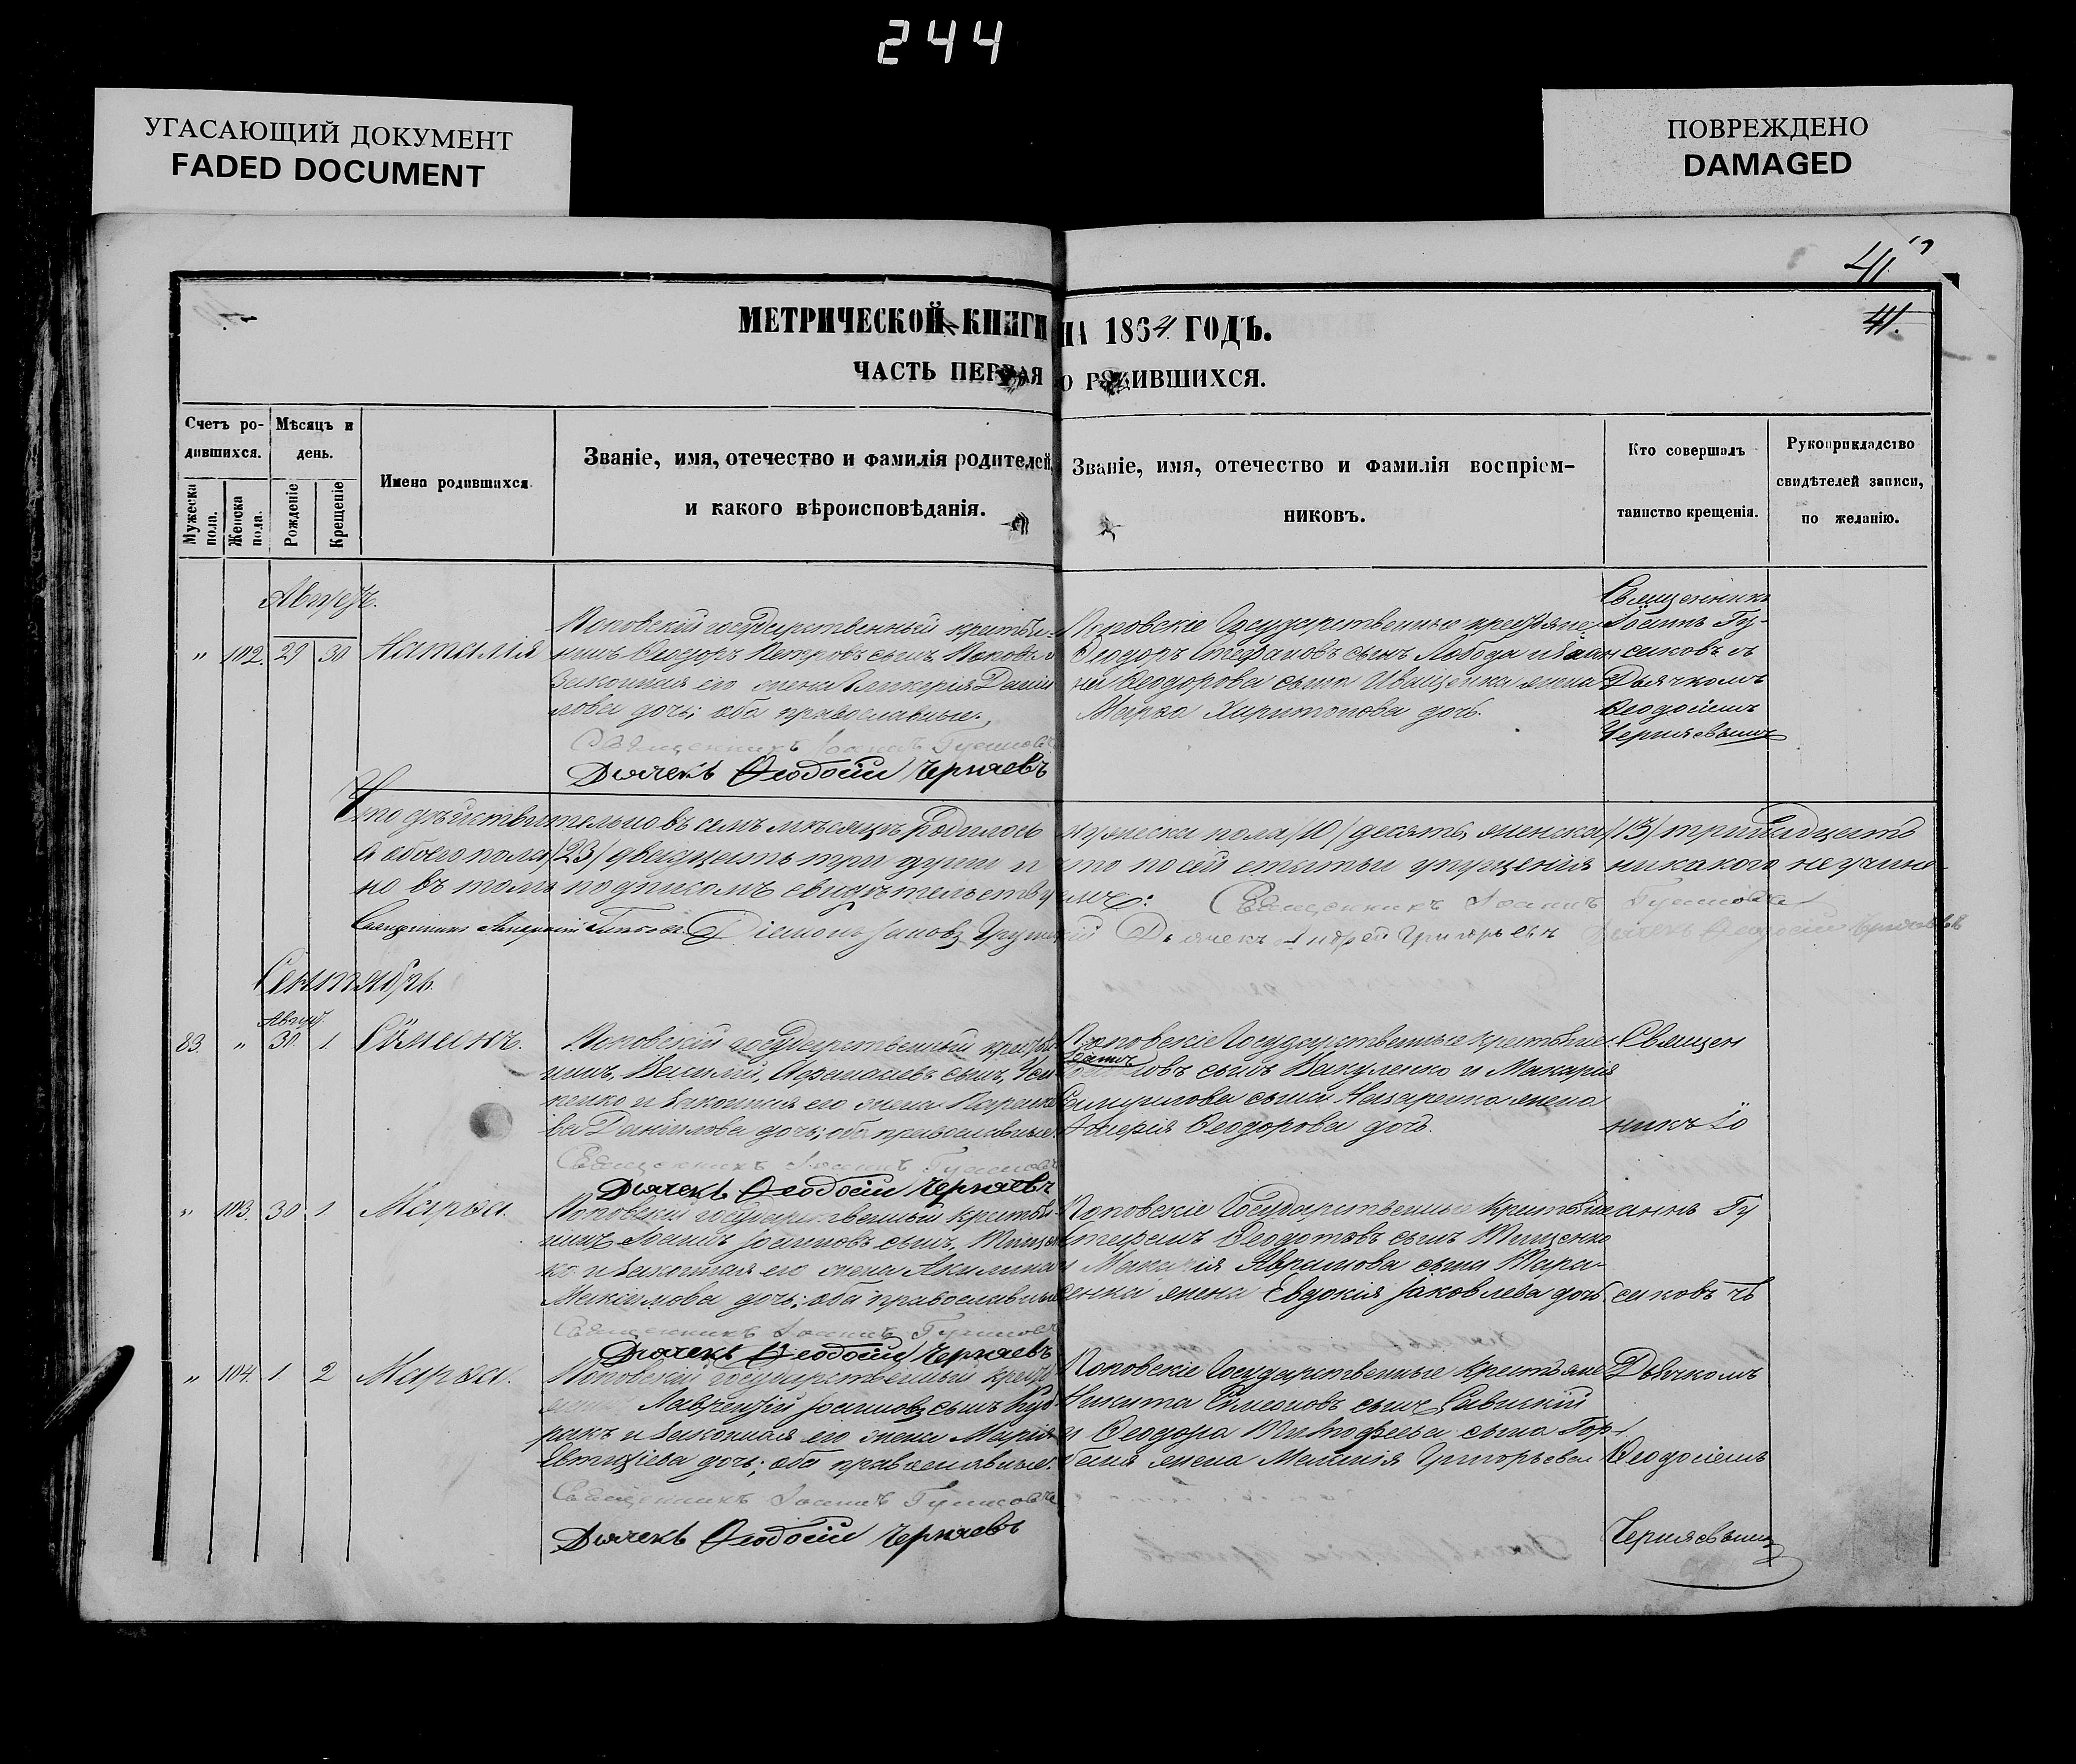 244
УГАСАЮЩИЙ ДОКУМЕНТ
FADED DOCUMENT
ПОВРЕЖДЕНО
DAMAGED
41.
41.
МЕТРИЧЕСКОЙ КНИГИ НА 1864 ГОДЪ.
ЧАСТЬ ПЕРВАЯ О РОДИВШИХСЯ.
Счетъ ро-
дившихся.
Мужеска пола.
Женска пола.
Мѣсяцъ и
день.
Рожденіе
Крещеніе
Имена родившихся
Званіе, имя, отечество и фамилія родителей,
и какого вѣроисповѣданія.
Званіе, имя, отечество и фамилія воспріем-
никовъ.
Кто совершалъ
таинство крещенія.
Рукоприкладство
свидѣтелей записи,
по желанію.
Августъ.
" 102. 29 30 Наталія
Поповскій государственный крестья-
нинъ Ѳеодоръ Петровъ сынъ
Законная его жена Гликерія Даніи
лова дочь; оба православные.
Священникъ Іоаннъ Гусаковъ
Дьячекъ Ѳеодосій Черняевъ
Поповскіе Государственные крестьяне:
Ѳеодоръ Стефановъ сынъ Лобода и Іоан
на Ѳеодорова сына Иващенка жена
Марѳа Харитонова дочь.
Священникъ
Іоаннъ Гу-
саковъ съ
Дьячкомъ
Ѳеодосіемъ
Черняевымъ
Что дѣйствительно въ семъ мѣсяцѣ родилось мужеска пола /10/ десять, женска /13/ тринадцать
а обоего пола /23/ двадцать три души и что по сей статьи упущенія никакого не учине-
но въ томъ подписомъ свидѣтельствуемъ: Священникъ Іоаннъ Гусаковъ
Священникъ Діаконъ Іаковъ Дьячекъ Андрей Григорьевъ Дьячекъ Ѳеодосій Черняевъ
Сентябрь.
Август.
83. " 30. 1. Сѷмеонъ.
Поповскій государственный крестья
нинъ, Василій, сынъ,
и законная его жена Параске
ва Данілова дочь; оба православные.
Священникъ Іоаннъ Гусаковъ
Дьячекъ Ѳеодосій Черняевъ
Поповскіе Государственные крестьяне:
сынъ Вакуленко и Макарія
сына Назаренка жена
Ѳеодорова дочь.
Священ
никъ Іо
" 103. 30 1. Марѳа.
Поповскій государственный крестья-
нинъ Іоаннъ Іоанновъ сынъ, Тищен
ко и законная его жена Акилина
Максимова дочь; оба православные
Священникъ Іоаннъ Гусаковъ
Дьячекъ Ѳеодосій Черняевъ
Поповскіе Государственные Крестьяне
Стефанъ Ѳеодотовъ сынъ Тищенко
и Макарія Аврамова сына Тара-
сенка жена Евдокія Іаковлева дочь.
аннъ Гу
саковъ съ
" 104. 1. 2 Марѳа.
Поповскій государственный крестья
Лаврентій Іоанновъ сынъ
и законная его жена Марія
Евтихіева дочь; оба православные.
Священникъ Іоаннъ Гусаковъ
Дьячекъ Ѳеодосій Черняевъ
Поповскіе Государственные Крестьяне
Никита Сѷмеоновъ сынъ Савицкій
и Ѳеодора Тимоѳеева сына Гор-
баня жена Меланія Григорьева
Дьячкомъ
Ѳеодосіемъ
Черняевымъ